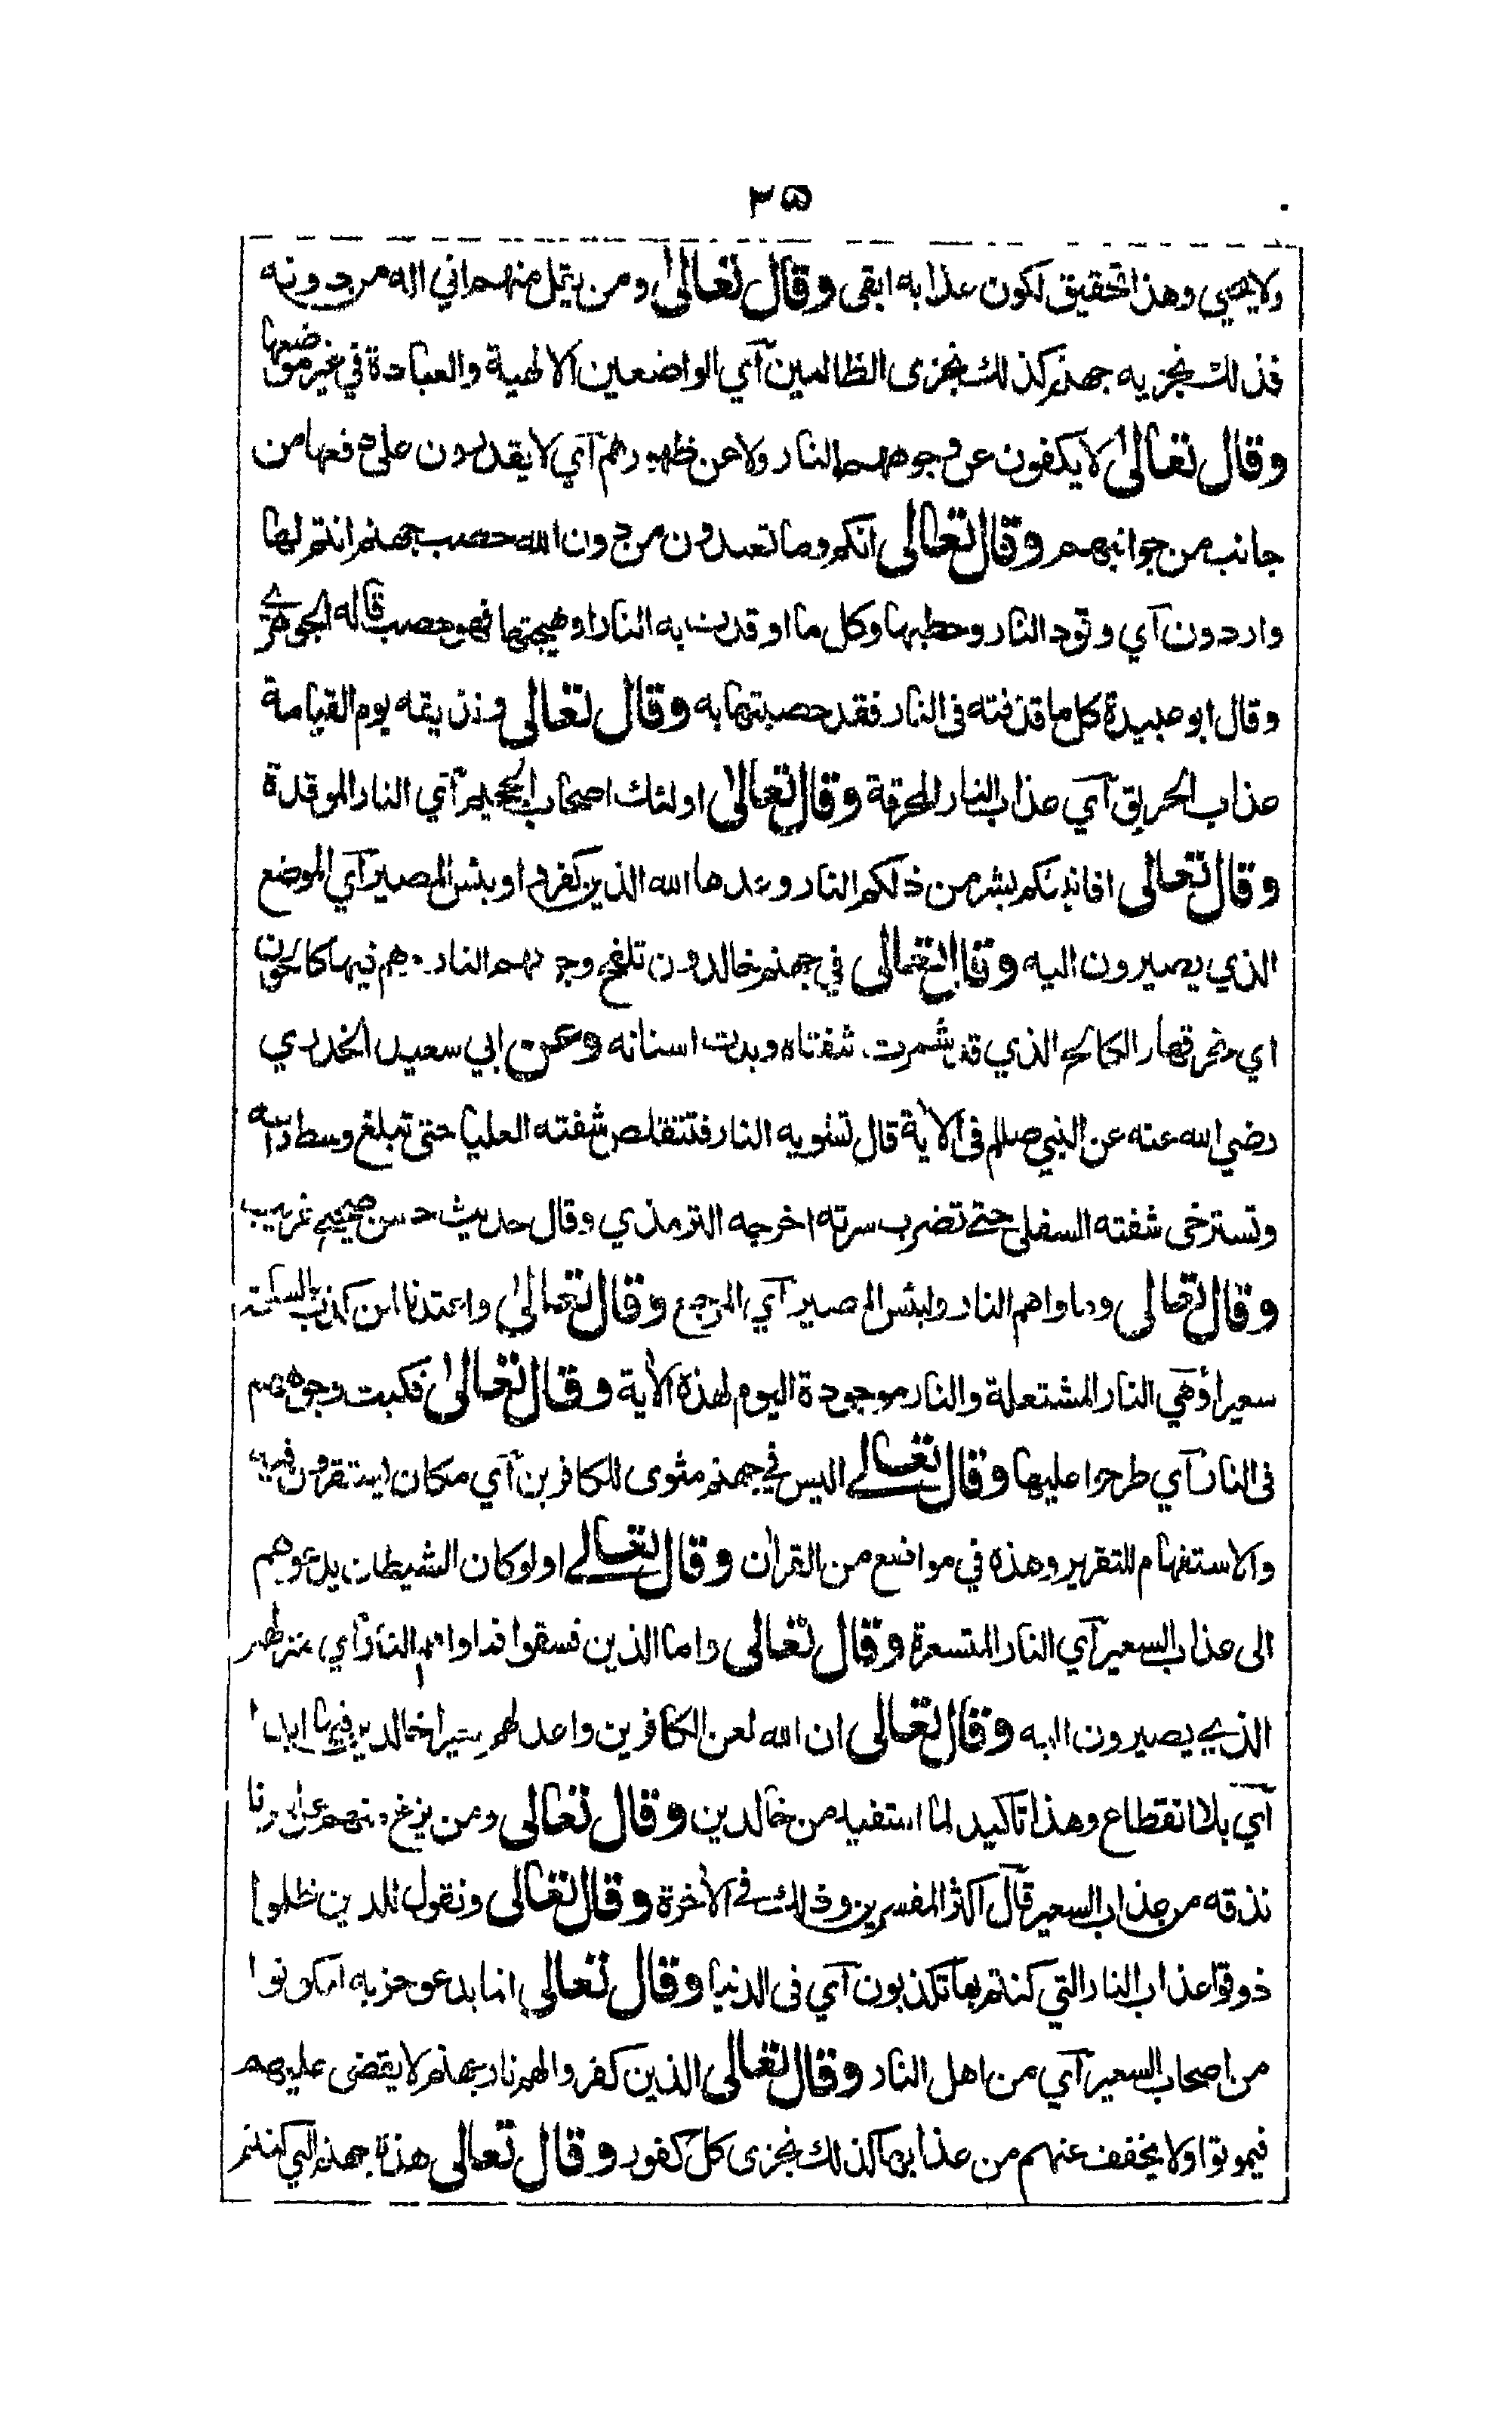 ٣٥
ولا يحيى وهذا تحقيق لكون عذابه ابقى وقال تعالى ومن يقل منهم اني اله من دونه
فذلك نجزيه جهنم كذلك نجزى الظالمين آي الواضعين الالهية والعبادة في غير موضعها
وقال تعالى لا يكفون عن وجوههم النار ولا عن ظهورهم آي لا يقدرون على دفعها من
جانب من جوانبهم وقال تعالى انكم وما تعبدون من دون الله حصب جهنم انتم لها
واردون آي وقود النار وحطبها وكل ما اوقدت به النار او هيجتها فهو حصب قاله الجوهري
وقال ابو عبيدة كل ما قذفته فى النار فقد حصبتها به وقال تعالى ونذيقه يوم القيامة
عذاب الحريق آي عذاب النار المحرقة وقال تعالى اولئك اصحاب الجحيم آي النار الموقدة
وقال تعالى افانبئكم بشر من ذلكم النار وعدها الله الذين كفروا وبئس المصير آي الموضع
الذي يصيرون اليه وقال تعالى في جهنم خالدون تلفح وجوههم النار وهم فيها كالحون
اي تحرقها والكالح الذي قد شمرت شفتاه وبدت اسنانه وعن ابي سعيد الخدري
رضي الله عنه عن النبي صللم فى الاية قال تشويه النار فتتقلص شفته العليا حتى تبلغ وسط راسه
وتسترخى شفته السفلى حتى تضرب سرته اخرجه الترمذي وقال حديث حسن صحيح غريب
وقال تعالى وماواهم النار ولبئس المصير آي المرجع وقال تعالى واعتدنا لمن كذب بالساعة
سعيرا وهي النار المشتعلة والنار موجودة اليوم لهذه الاية وقال تعالى فكبت وجوههم
فى النار آي طرحوا عليها وقال تعالى اليس في جهنم مثوى للكافرين آي مكان يستقرون فيه
والاستفهام للتقرير وهذه في مواضع من القرآن وقال تعالى اولو كان الشيطان يدعوهم
الى عذاب السعير آي النار المتسعرة وقال تعالى واما الذين فسقوا فماواهم النار آي منزلهم
الذي يصيرون اليه وقال تعالى ان الله لعن الكافرين واعد لهم سعيرا خالدين فيها ابدا
آي بلا انقطاع وهذا تاكيد لما استفيد من خالدين وقال تعالى ومن يزغ منهم عن امرنا
نذقه من عذاب السعير قال اكثر المفسرين وذلك في الاخرة وقال تعالى ونقول للذين ظلموا
ذوقوا عذاب النار التي كنتم بها تكذبون آي فى الدنيا وقال تعالى انما يدعو حزبه ليكونوا
من اصحاب السعير آي من اهل النار وقال تعالى الذين كفروا لهم نار جهنم لا يقضى عليهم
فيموتوا ولا يخفف عنهم من عذابها كذلك نجزى كل كفور وقال تعالى هذه جهنم التي كنتم